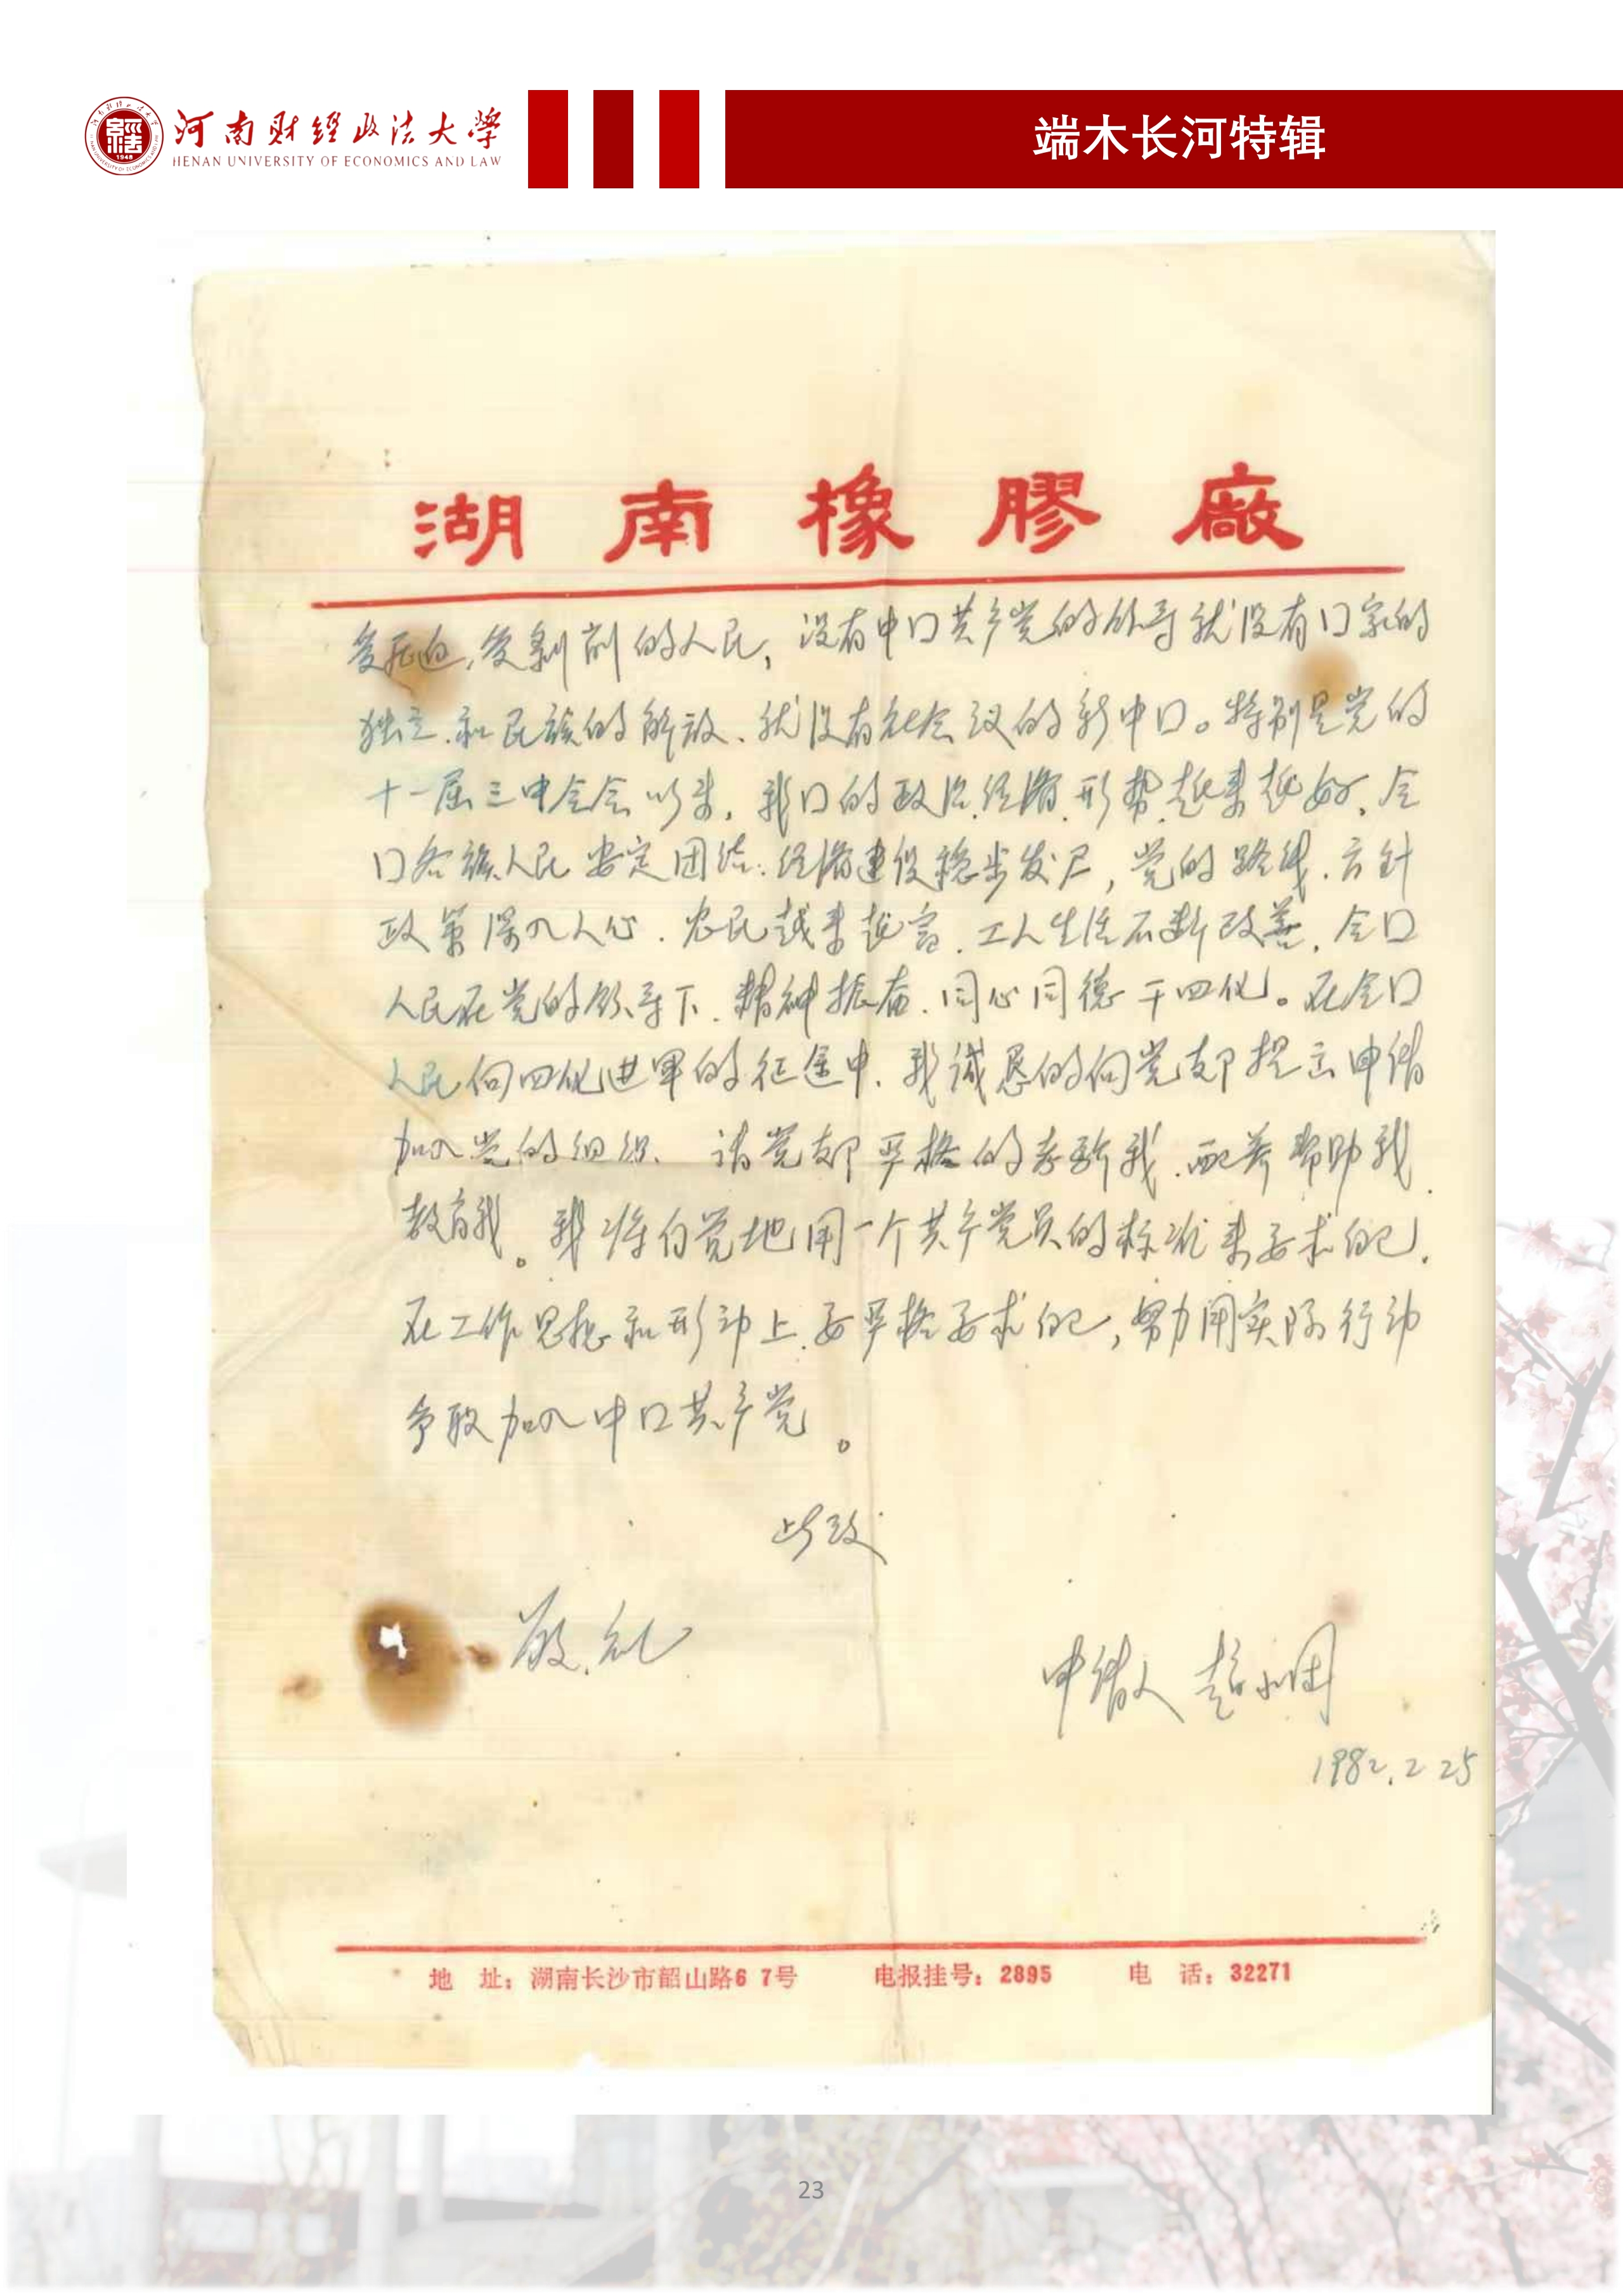 河南财经政法大学
HENAN UNIVERSITY OF ECONOMICS AND LAW
端木长河特辑
湖南橡膠廠
受压迫、受剥削的人民，没有中口共产党的领导就没有口家的
独立、和民族的解放、就没有社会议的新中口。特别是党的
十一届三中全会以来，我口的政治、经济、形势、越来越好、全
口各族人民安定团结：经济建设稳步发展，党的路线、方针
政策深入人心、农民越来越富、工人生活不断改善、全口
人民在党的领导下、精神振奋、同心同德干四化。在全口
人民向四化进军的征途中、我诚恳的向党支部提出申请
加入党的组织、请党支部严格的考验我、培养帮助我、
教育我。我将自觉地用一个共产党员的标准来要求自己.
在工作思想和形动上、要严格要求自己，努力用实际行动
争取加入中口共产党。
此致
敬礼
申请人
1982.2 25
地 址：湖南长沙市韶山路6 7号 电报挂号：2895 电 话：32271
23